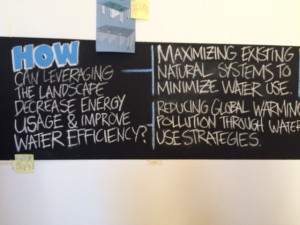 HOW
CAN LEVERAGING
THE LANDSCAPE
DECREASE ENERGY
USAGE & IMPROVE
WATER EFFICIENCY?
MAXIMIZING EXISTING
NATURAL SYSTEMS TO
MINIMIZE WATER USE.
REDUCING GLOBAL WARMING
POLLUTION THROUGH WATER
USE STRATEGIES.